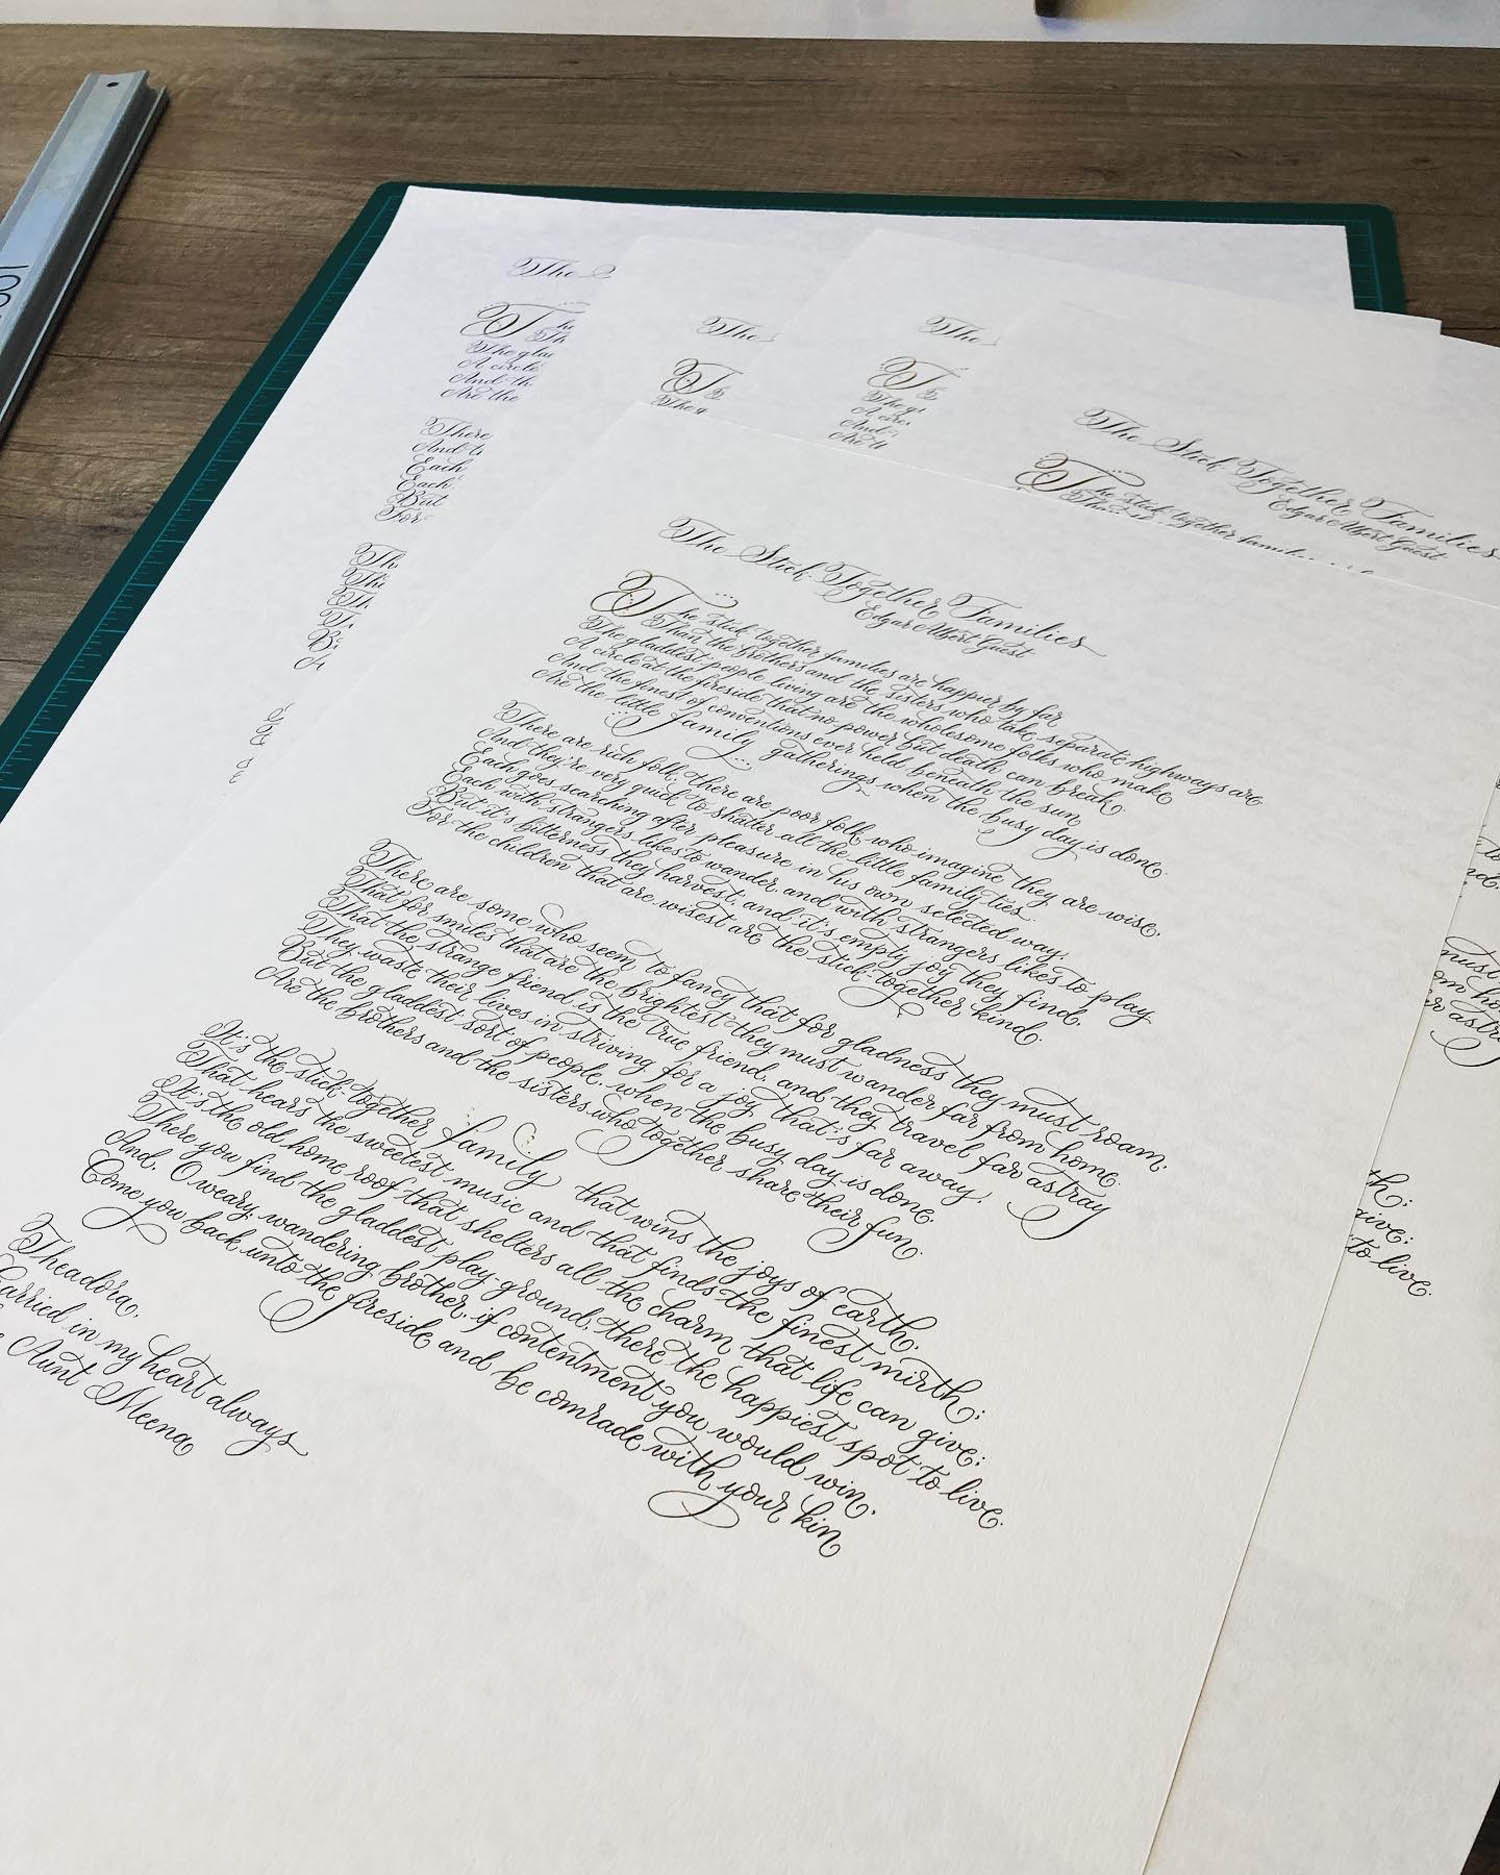 The Stick-Together Families
Edgar Albert Guest
The stick together families are happier by far
Than the brothers and the sisters who take separate highways are.
The gladdest people living are the wholesome folks who make
A circle at the fireside that no power but death can break.
And the finest of conventions ever held beneath the sun
Are the little family gatherings when the busy day is done.
There are rich folk, there are poor folk, who imagine they are wise,
And they're very quick to shatter all the little family ties.
Each goes searching after pleasure in his own selected way,
Each with strangers likes to wander, and with strangers likes to play.
But it's bitterness they harvest, and it's empty joy they find,
For the children that are wisest are the stick-together kind.
There are some who seem to fancy that for gladness they must roam,
That for smiles that are the brightest they must wander far from home.
That the strange friend is the true friend, and they travel far astray
They waste their lives in striving for a joy that's far away,
But the gladdest sort of people, when the busy day is done,
Are the brothers and the sisters who together share their fun.
It's the stick-together family that wins the joys of earth,
That hears the sweetest music and that finds the finest mirth;
It's the old home roof that shelters all the charm that life can give;
There you find the gladdest play-ground, there the happiest spot to live.
And, O weary, wandering brother, if contentment you would win,
Come you back unto the fireside and be comrade with your kin
Theadora,
Carried in my heart always
Aunt Meena
The
The
The
The glad
A circle
And th
Are the
There
And t
Each
Each
But
For
The
The
The
A circ
And
The Stick-Together Families
Edgar Albert Guest
The stick together famil
Than
give;
to live.